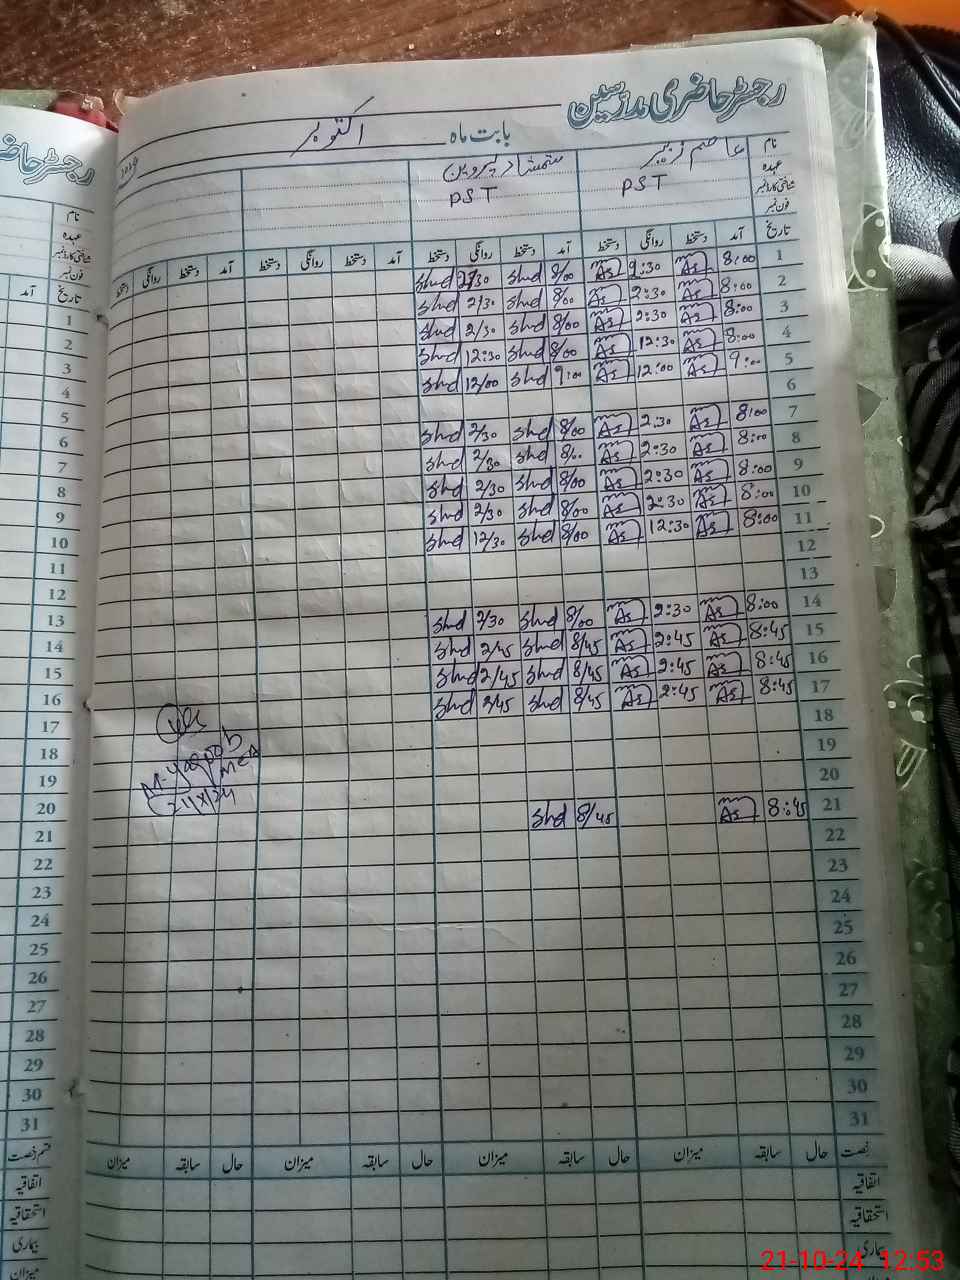 رجسٹر حاضری مدرسین
بابت ماہ اکتوبر
نام عاصم زبیر شمشاد پروین
عہدہ PST PST
شناختی کارڈ نمبر
فون نمبر
تاریخ آمد دستخط روانگی دستخط آمد دستخط روانگی دستخط آمد دستخط روانگی دستخط آمد دستخط روانگی دستخط
1 8:00 As 2:30 As 8/00 Shd 2/30 Shd
2 8:00 As 2:30 As 8/00 Shd 2/30 Shd
3 8:00 As 2:30 As 8/00 Shd 2/30 Shd
4 8:00 As 12:30 As 8/00 Shd 12:30 Shd
5 9:00 As 12:00 As 9:00 Shd 12/00 Shd
6
7 8:00 As 2:30 As 8/00 Shd 2/30 Shd
8 8:00 As 2:30 As 8/00 Shd 2/30 Shd
9 8:00 As 2:30 As 8/00 Shd 2/30 Shd
10 8:00 As 2:30 As 8/00 Shd 2/30 Shd
11 8:00 As 12:30 As 8/00 Shd 12/30 Shd
12
13
14 8:00 As 2:30 As 8/00 Shd 2/30 Shd
15 8:45 As 2:45 As 8/45 Shd 2/45 Shd
16 8:45 As 2:45 As 8/45 Shd 2/45 Shd
17 8:45 As 2:45 As 8/45 Shd 2/45 Shd
18
19
20
21 8:45 As 8/45 Shd
22
23
24
25
26
27
28
29
30
31
M. Yaqoob
MEA
رخصت حال سابقہ میزان حال سابقہ میزان حال سابقہ میزان حال سابقہ میزان
اتفاقیہ
استحقاقیہ
بیماری
رجسٹر حاضر
نام
عہدہ
شناختی کارڈ نمبر
فون نمبر
تاریخ آمد
1
2
3
4
5
6
7
8
9
10
11
12
13
14
15
16
17
18
19
20
21
22
23
24
25
26
27
28
29
30
31
قسم رخصت
اتفاقیہ
استحقاقیہ
بیماری
میزان
21-10-24 12:53